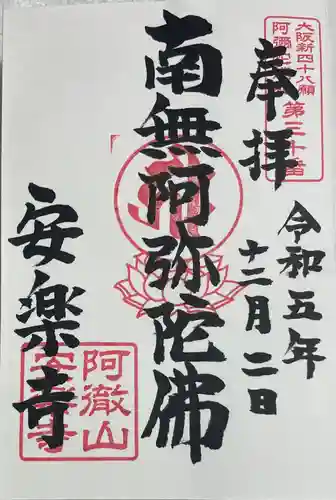 奉拝
大阪新四十八願
阿彌陀
第三十番
令和五年
十二月二日
南無阿弥陀佛
安楽寺
阿徹山
安楽寺